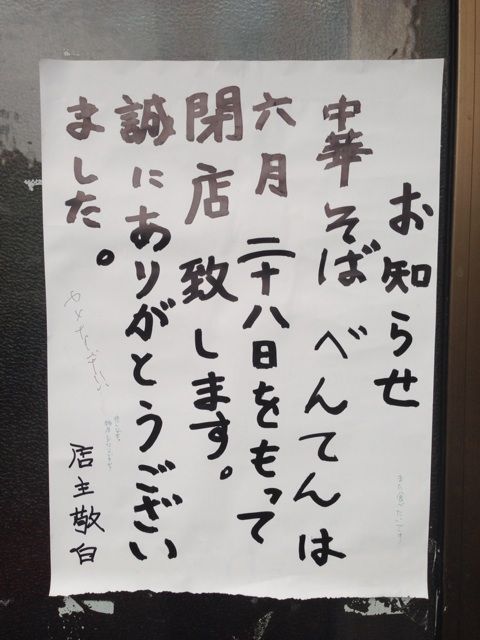 お知らせ
中華そば べんてんは
六月 二十八日をもって
閉店 致します。
誠にありがとうござい
ました。
店主敬白
また食べたいです